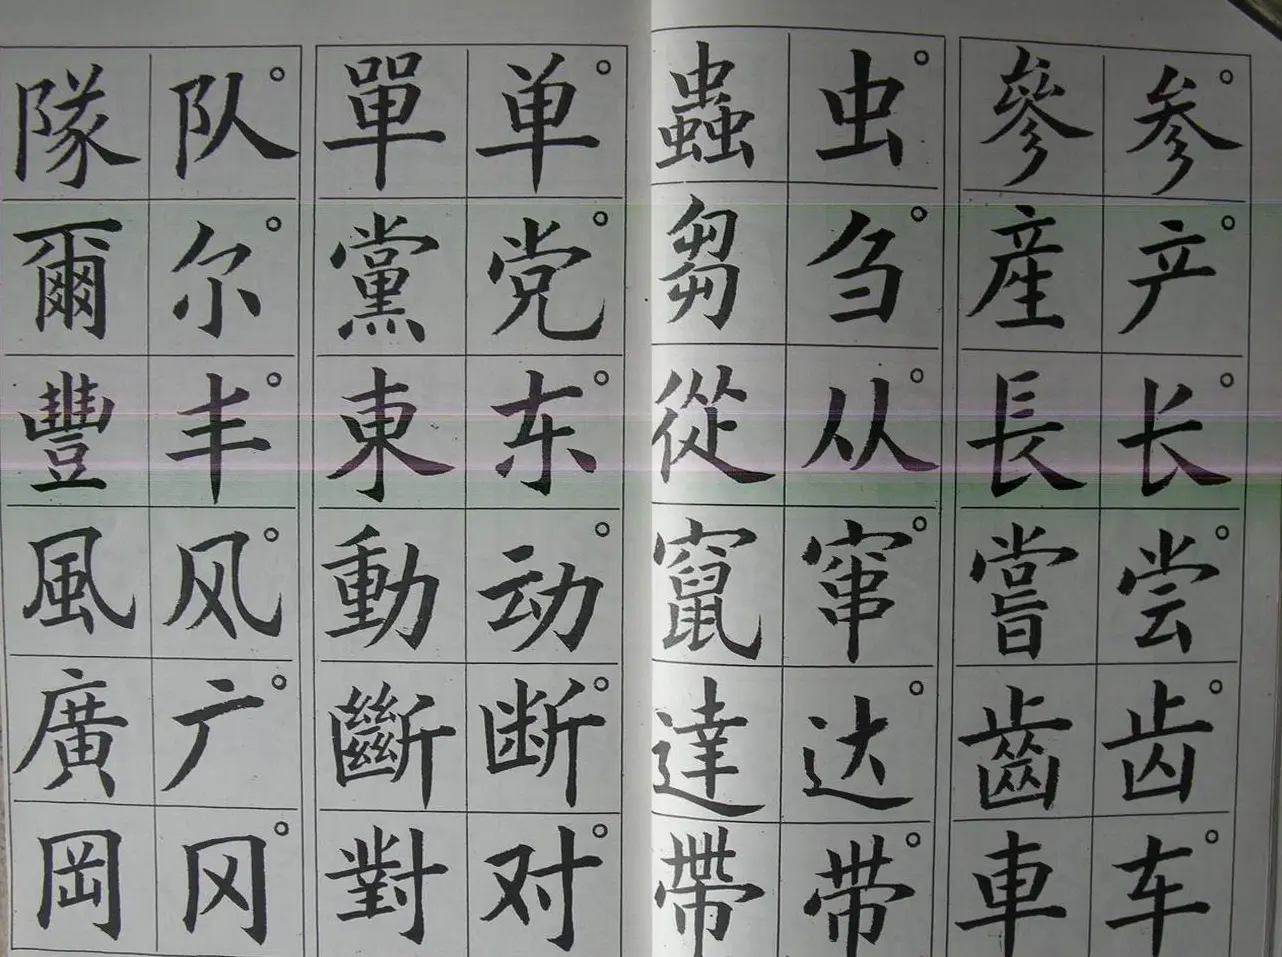 参产长尝齿车
參產長嘗齒車
虫刍从窜达带
蟲芻從竄達帶
单党东动断对
單黨東動斷對
队尔丰风广冈
隊爾豐風廣岡